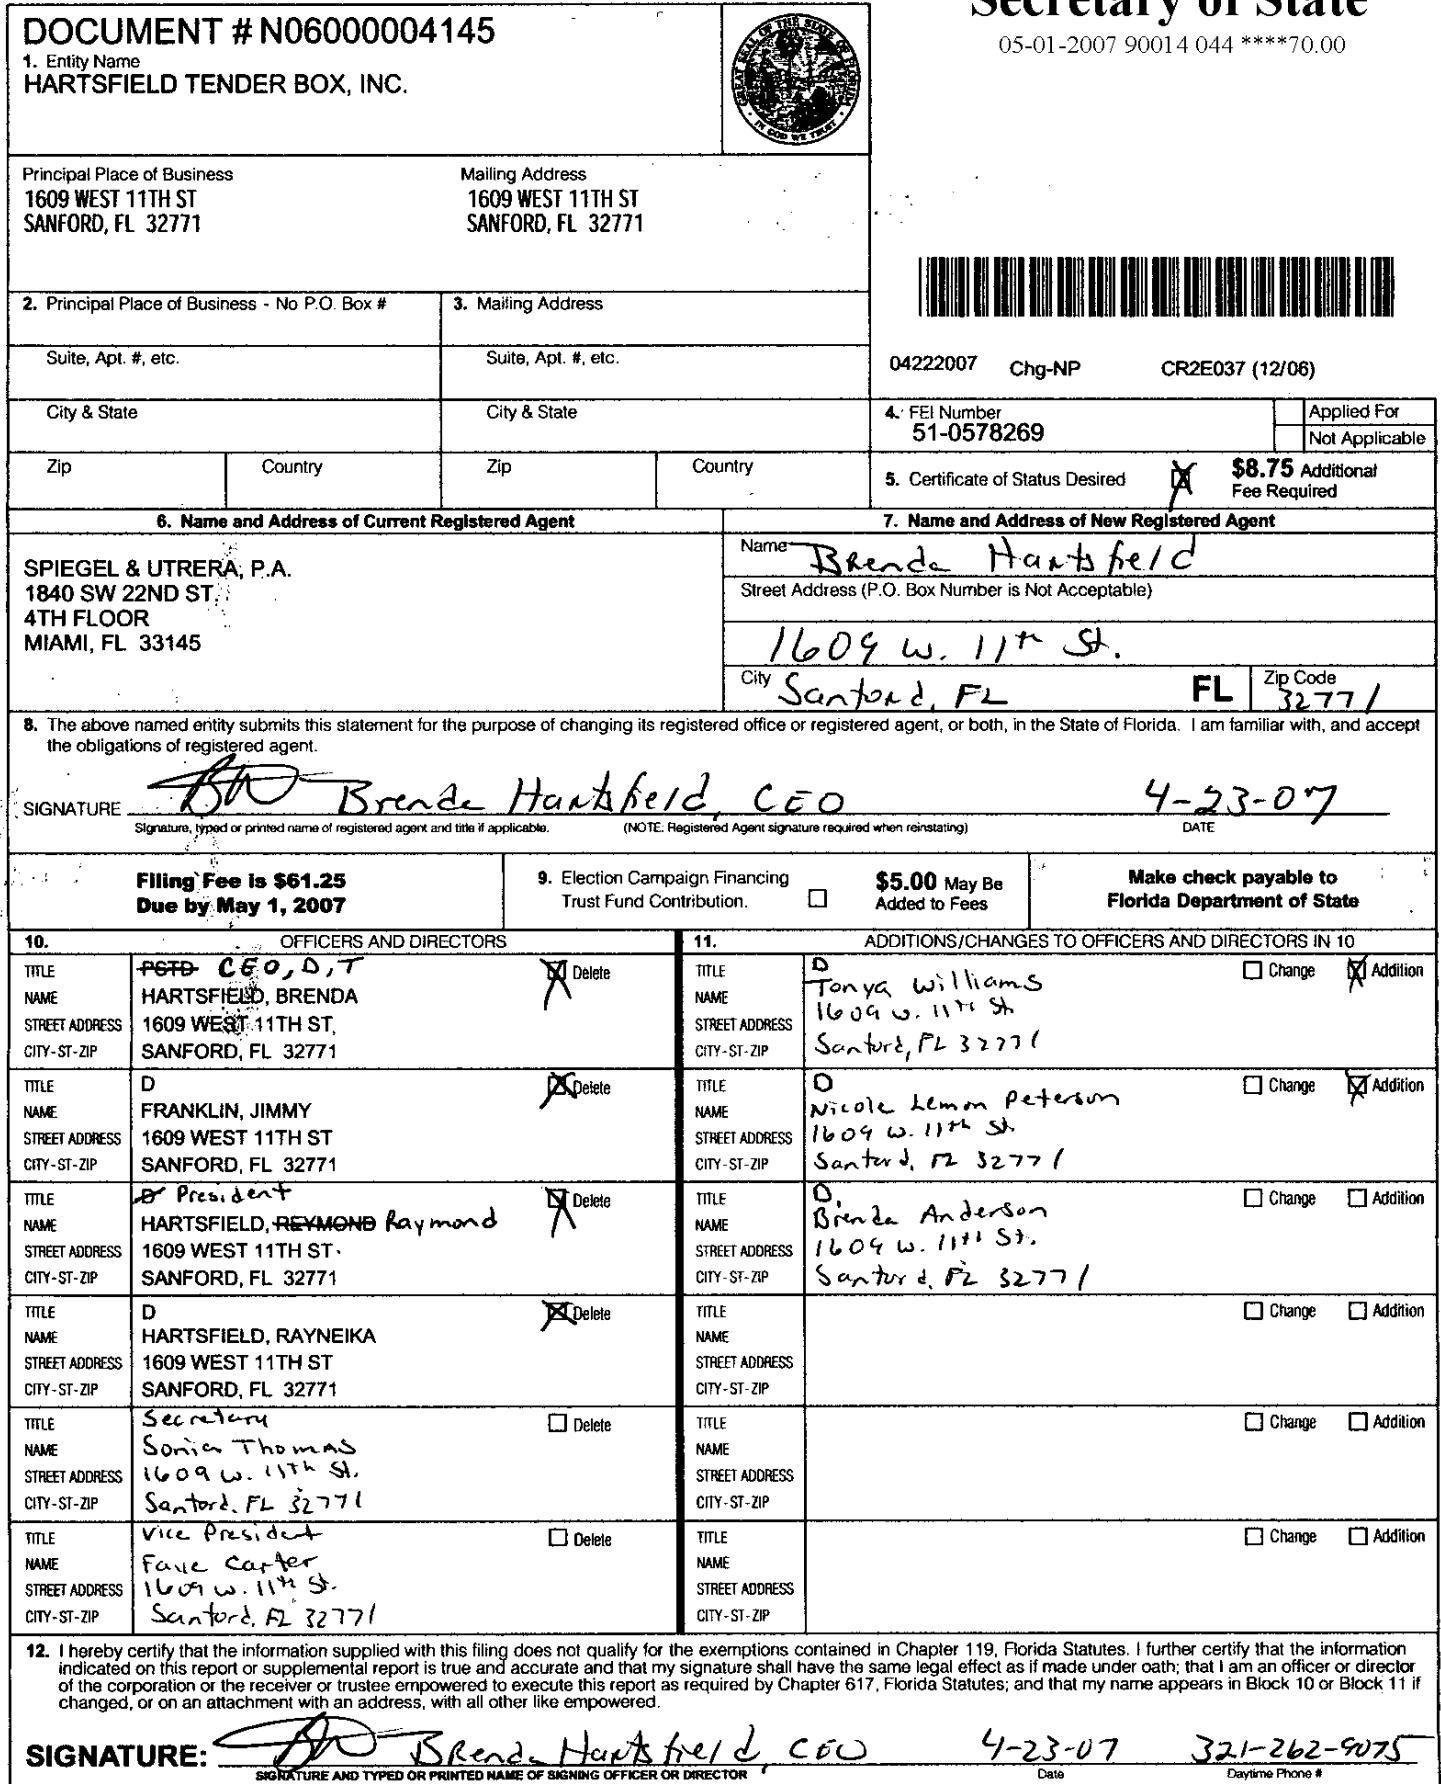 Secretary of State
05-01-2007 90014 044 ****70.00
DOCUMENT # N06000004145
1. Entity Name
HARTSFIELD TENDER BOX, INC.
GREAT SEAL OF THE STATE OF FLORIDA
IN GOD WE TRUST
Principal Place of Business
1609 WEST 11TH ST
SANFORD, FL 32771
Mailing Address
1609 WEST 11TH ST
SANFORD, FL 32771
2. Principal Place of Business - No P.O. Box #
3. Mailing Address
Suite, Apt. #, etc.
Suite, Apt. #, etc.
04222007 Chg-NP CR2E037 (12/06)
City & State
City & State
4. FEI Number
51-0578269
Applied For
Not Applicable
Zip
Country
Zip
Country
5. Certificate of Status Desired
$8.75 Additional
Fee Required
6. Name and Address of Current Registered Agent
SPIEGEL & UTRERA, P.A.
1840 SW 22ND ST.
4TH FLOOR
MIAMI, FL 33145
7. Name and Address of New Registered Agent
Name Brenda Hartsfield
Street Address (P.O. Box Number is Not Acceptable)
1609 W. 11th St.
City Sanford, FL FL Zip Code 32771
8. The above named entity submits this statement for the purpose of changing its registered office or registered agent, or both, in the State of Florida. I am familiar with, and accept
the obligations of registered agent.
SIGNATURE Brenda Hartsfield, CEO 4-23-07
Signature, typed or printed name of registered agent and title if applicable. (NOTE: Registered Agent signature required when reinstating) DATE
Filing Fee is $61.25
Due by May 1, 2007
9. Election Campaign Financing
Trust Fund Contribution.
$5.00 May Be
Added to Fees
Make check payable to
Florida Department of State
10. OFFICERS AND DIRECTORS
TITLE PSTD CEO, D, T Delete
NAME HARTSFIELD, BRENDA
STREET ADDRESS 1609 WEST 11TH ST,
CITY-ST-ZIP SANFORD, FL 32771
TITLE D Delete
NAME FRANKLIN, JIMMY
STREET ADDRESS 1609 WEST 11TH ST
CITY-ST-ZIP SANFORD, FL 32771
TITLE D President Delete
NAME HARTSFIELD, REYMOND Raymond
STREET ADDRESS 1609 WEST 11TH ST.
CITY-ST-ZIP SANFORD, FL 32771
TITLE D Delete
NAME HARTSFIELD, RAYNEIKA
STREET ADDRESS 1609 WEST 11TH ST
CITY-ST-ZIP SANFORD, FL 32771
TITLE Secretary Delete
NAME Sonia Thomas
STREET ADDRESS 1609 W. 11th St.
CITY-ST-ZIP Sanford, FL 32771
TITLE Vice President Delete
NAME Faye Carter
STREET ADDRESS 1609 W. 11th St.
CITY-ST-ZIP Sanford, FL 32771
11. ADDITIONS/CHANGES TO OFFICERS AND DIRECTORS IN 10
TITLE D Change Addition
NAME Tonya Williams
STREET ADDRESS 1609 W. 11th St
CITY-ST-ZIP Sanford, FL 32771
TITLE D Change Addition
NAME Nicole Lemon Peterson
STREET ADDRESS 1609 W. 11th St.
CITY-ST-ZIP Sanford, FL 32771
TITLE D. Change Addition
NAME Brenda Anderson
STREET ADDRESS 1609 W. 11th St.
CITY-ST-ZIP Sanford, FL 32771
TITLE Change Addition
NAME
STREET ADDRESS
CITY-ST-ZIP
TITLE Change Addition
NAME
STREET ADDRESS
CITY-ST-ZIP
TITLE Change Addition
NAME
STREET ADDRESS
CITY-ST-ZIP
12. I hereby certify that the information supplied with this filing does not qualify for the exemptions contained in Chapter 119, Florida Statutes. I further certify that the information
indicated on this report or supplemental report is true and accurate and that my signature shall have the same legal effect as if made under oath; that I am an officer or director
of the corporation or the receiver or trustee empowered to execute this report as required by Chapter 617, Florida Statutes; and that my name appears in Block 10 or Block 11 if
changed, or on an attachment with an address, with all other like empowered.
SIGNATURE: Brenda Hartsfield, CEO 4-23-07 321-262-9075
SIGNATURE AND TYPED OR PRINTED NAME OF SIGNING OFFICER OR DIRECTOR Date Daytime Phone #